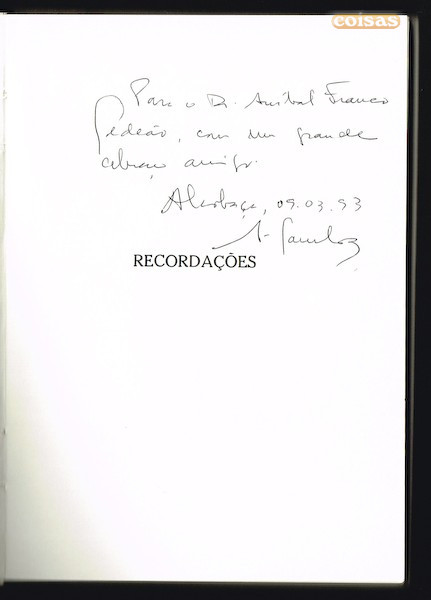 coisas
Para o Dr. Aníbal Franco
Gedeão, com um grande
abraço amigo.
Alcobaça, 09.03.93
RECORDAÇÕES